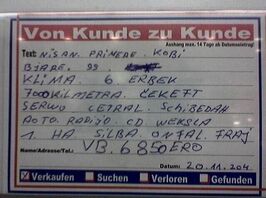 Von Kunde zu Kunde
Aushang max. 14 Tage ab Datumseintrag!
Text: NISAN. PRIMERE. KOBI
BJARE. 99.
KLIMA. 6 ERBEK
7000KILMETRA. ČEKEFT
SERWO CETRAL. SCHIBEDAH
AOTO. RADIJO. CD WEKSLA
1 HA SILBA. ONFAL. FRAJ
Name/Adresse/Tel.: VB. 6850 ERO
Datum: 20.11.204
Verkaufen Suchen Verloren Gefunden